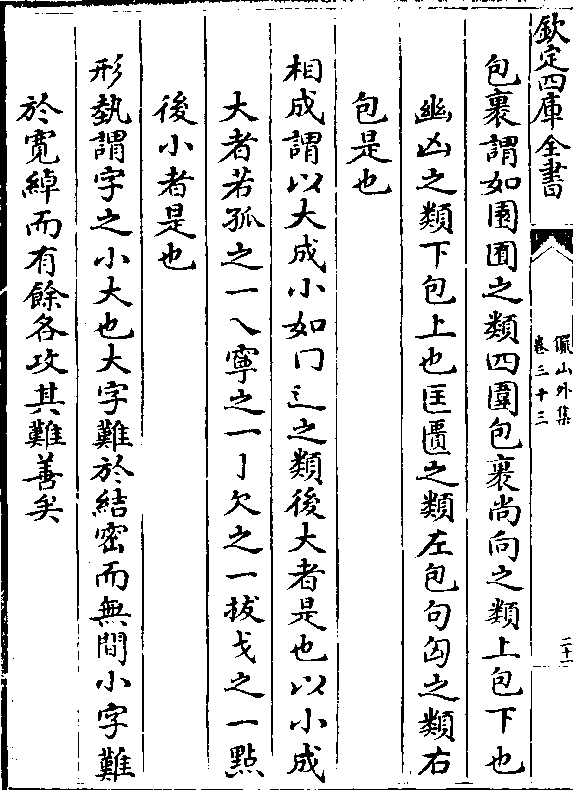 欽定四庫全書
儼山外集
卷三十三
二十一
包裹謂如園囿之類四圍包裹尚向之類上包下也
幽凶之類下包上也匡匱之類左包句匈之類右
包是也
相成謂以大成小如冂辶之類後大者是也以小成
大者若孤之一乀寧之一亅欠之一拔戈之一點
後小者是也
形埶謂字之小大也大字難於結密而無間小字難
於寛綽而有餘各攻其難善矣